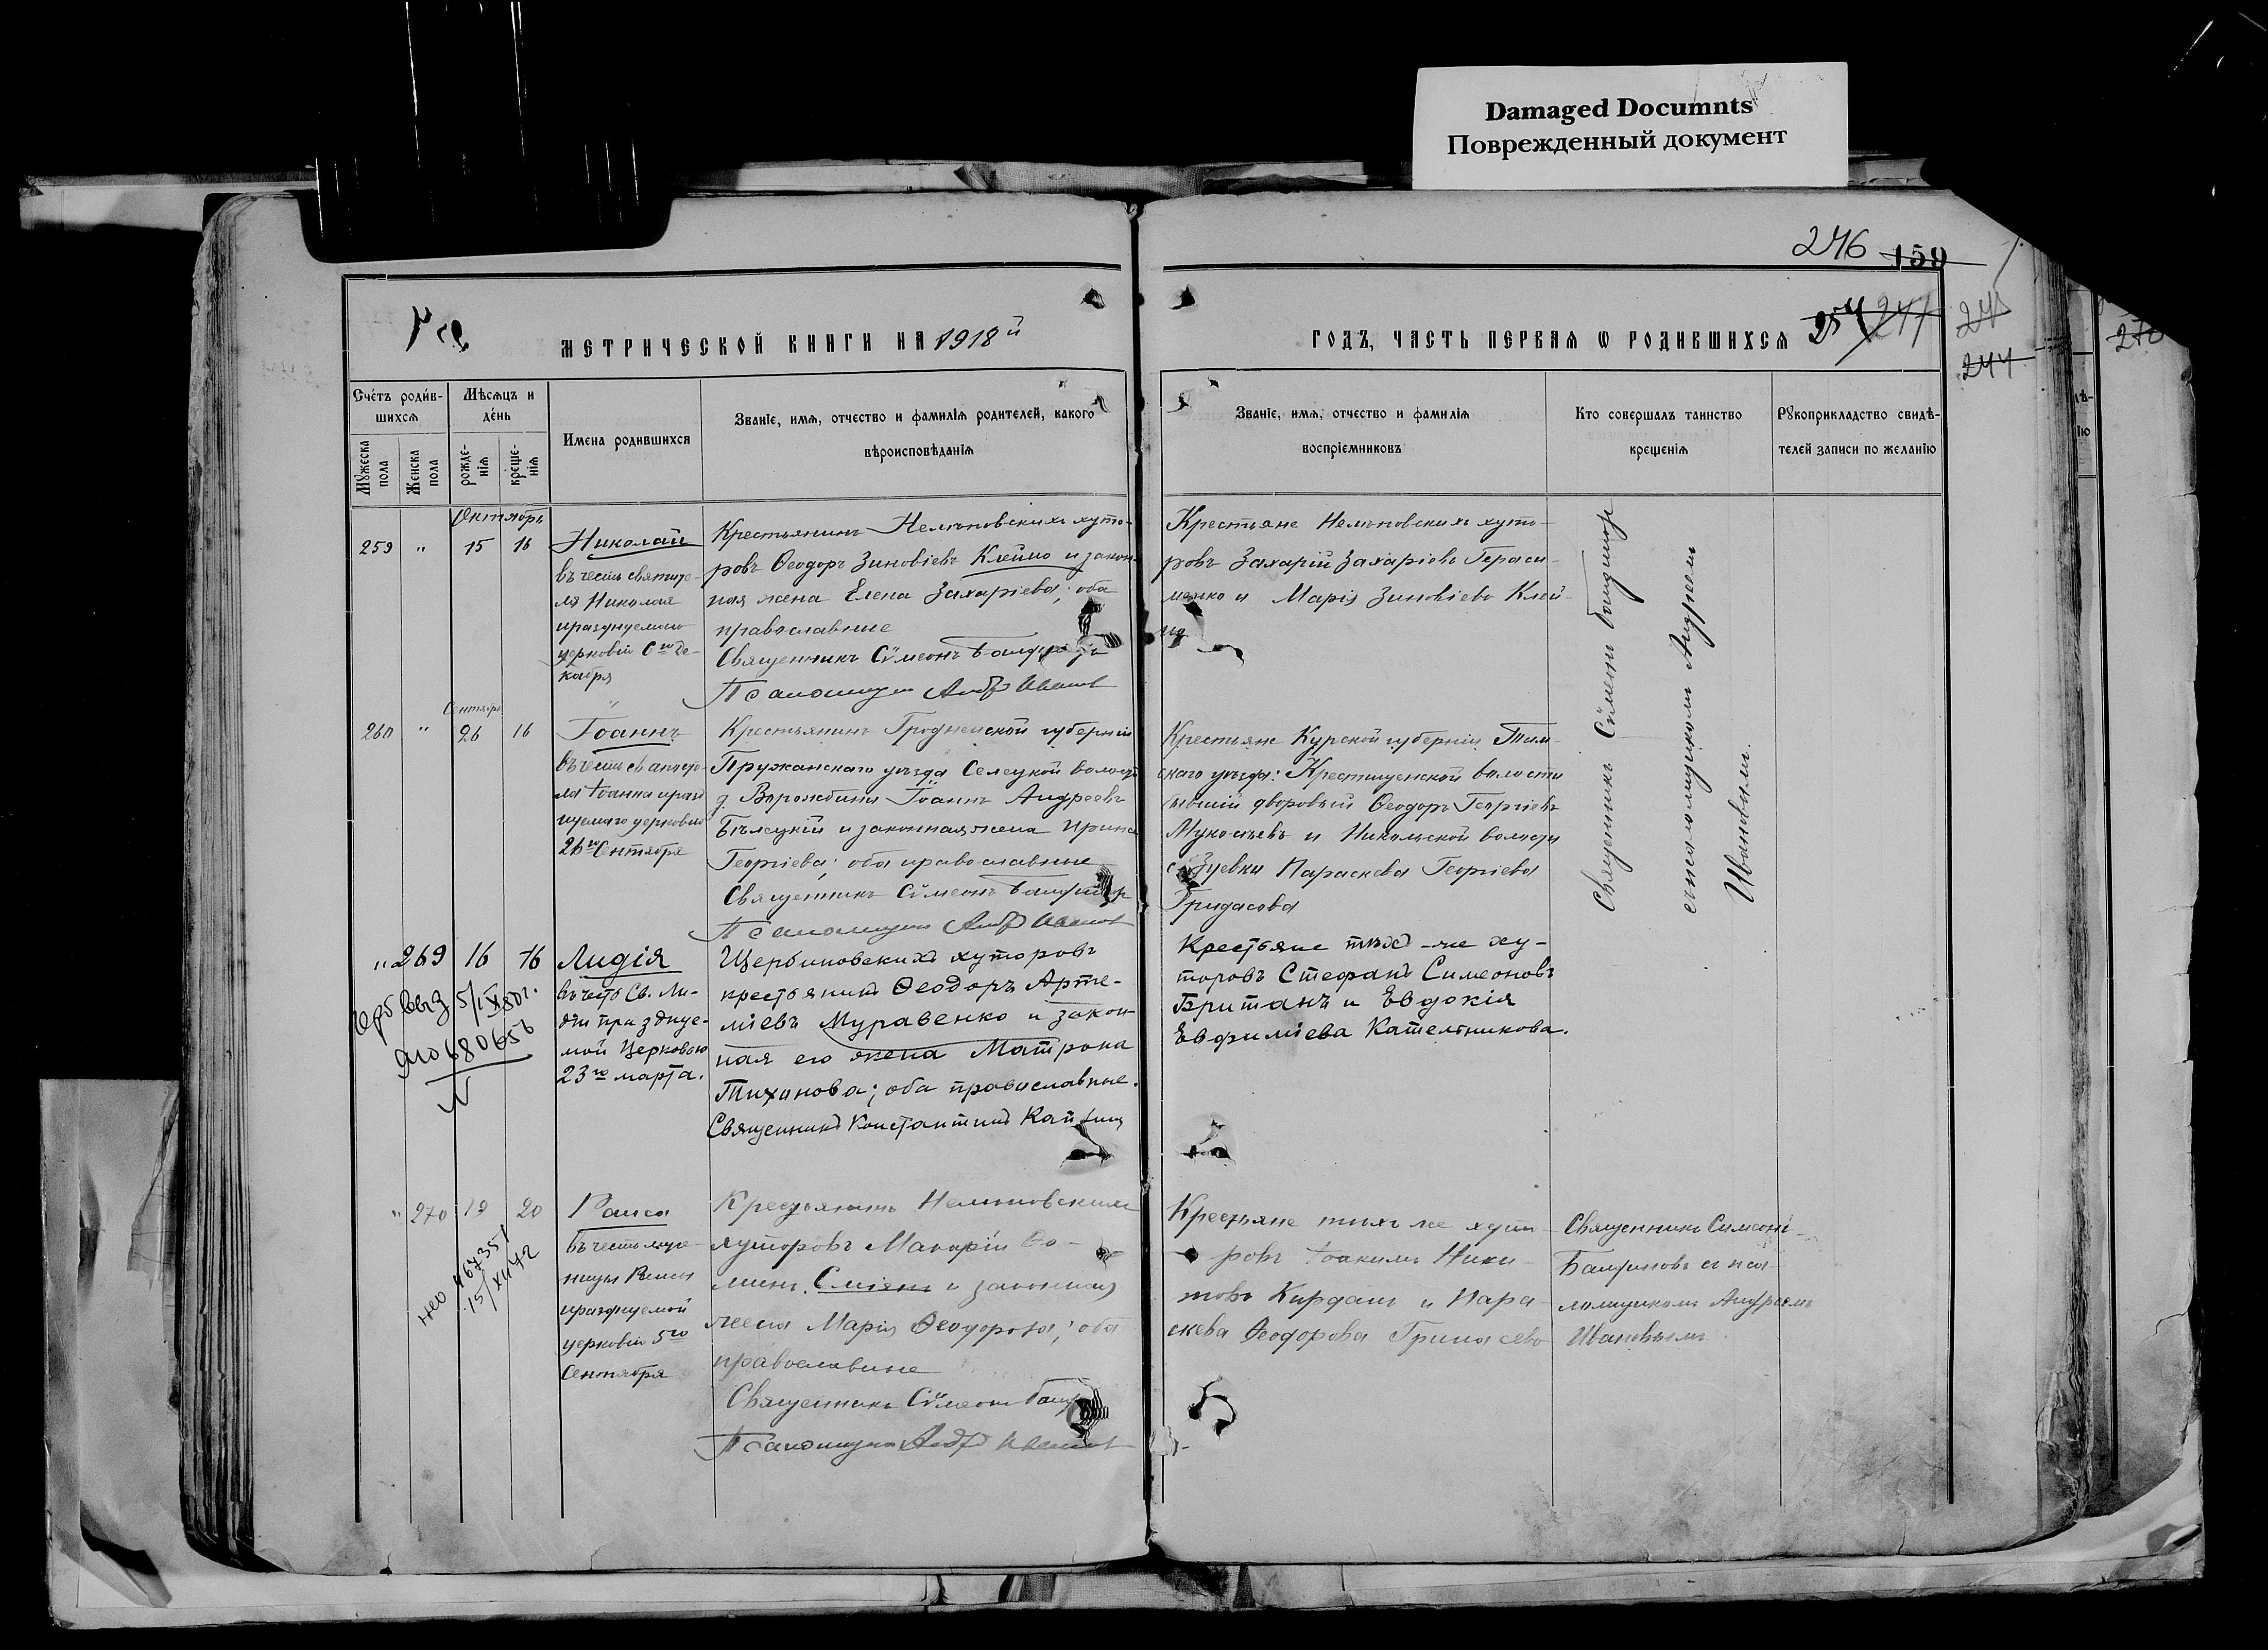 Damaged Documnts
Поврежденный документ
246 159
МЕТРИЧЕСКОЙ КНИГИ НА 1918й
ГОДЪ, ЧАСТЬ ПЕРВАЯ Ѡ РОДИВШИХСЯ 254 247
24
244
270
Счетъ родив-
шихся
Мѣсяцъ и
день
Мужеска
пола
Женска
пола
рожде-
нія
креще-
нія
Имена родившихся
Званіе, имя, отчество и фамилія родителей, какого
вѣроисповѣданія
Званіе, имя, отчество и фамилія
воспріемниковъ
Кто совершалъ таинство
крещенія
Рукоприкладство свидѣ-
телей записи по желанію
Октябрь
259 " 15 16
Николай
въ честь святите-
ля Николая
празднуемаго
церковію 6го Де-
кабря
Крестьянинъ хуто-
ровъ Ѳеодоръ Зиновіевъ Клеймо и закон-
ная жена Елена Захаріева; оба
православные
Священникъ Сѵмеонъ
Псаломщик Андр Иванов
Крестьяне хуто-
ровъ Захарій Захаріевъ Гераси-
менко и Марія Зиновіева Клей-
мо
Священникъ Сѵмеонъ
съ псаломщикомъ Андреем
Ивановымъ
Сентябрь
260 " 26 16
Іоаннъ
въ честь св апосто-
ла Іоанна празд
нуемаго церковію
26го Сентября
Крестьянинъ Гродненской губерніи
Пружанскаго уѣзда Селецкой волости
д. Іоаннъ Андреевъ
Бѣлецкій и законная жена Ирина
Георгіева; оба православные
Священникъ Сѵмеонъ
Псаломщик Андр Иванов
Крестьяне Курской губерніи Тим-
скаго уѣзда: Крестищенской волости
бывшій дворовый Ѳеодоръ Георгіевъ
и Никольской волости
с. Зуевки Параскева Георгіева
Гридасова
" 269 16 16
Лидія
въ честь Св. Ли-
діи празднуе-
мой Церковью
23го марта.
Щербиновскихъ хуторовъ
крестьянинъ Ѳеодоръ Арте-
міевъ Муравенко и закон-
ная его жена Матрона
Тихонова; оба православные.
Священникъ Константинъ
Крестьяне тѣхъ-же ху-
торовъ Стефанъ Симеоновъ
Британъ и Евдокія
Евфиміева Кательникова.
680656
" 270 19 20
Раиса
въ честь муче-
ницы Раисы
празднуемой
церковію 5го
Сентября
Крестьянинъ
хуторовъ Макарій Ѳо-
минъ и законная
жена Марія Ѳеодорова; оба
православные
Священникъ Сѵмеонъ
Псаломщикъ Андр Иванов
Крестьяне тѣхъ же хуто-
ровъ Іоакимъ Ники-
товъ Кирдаш и Пара-
скева Ѳеодорова
Священникъ Симеонъ
съ пса-
ломщикомъ Андреемъ
Ивановымъ
467351
15/XII 72